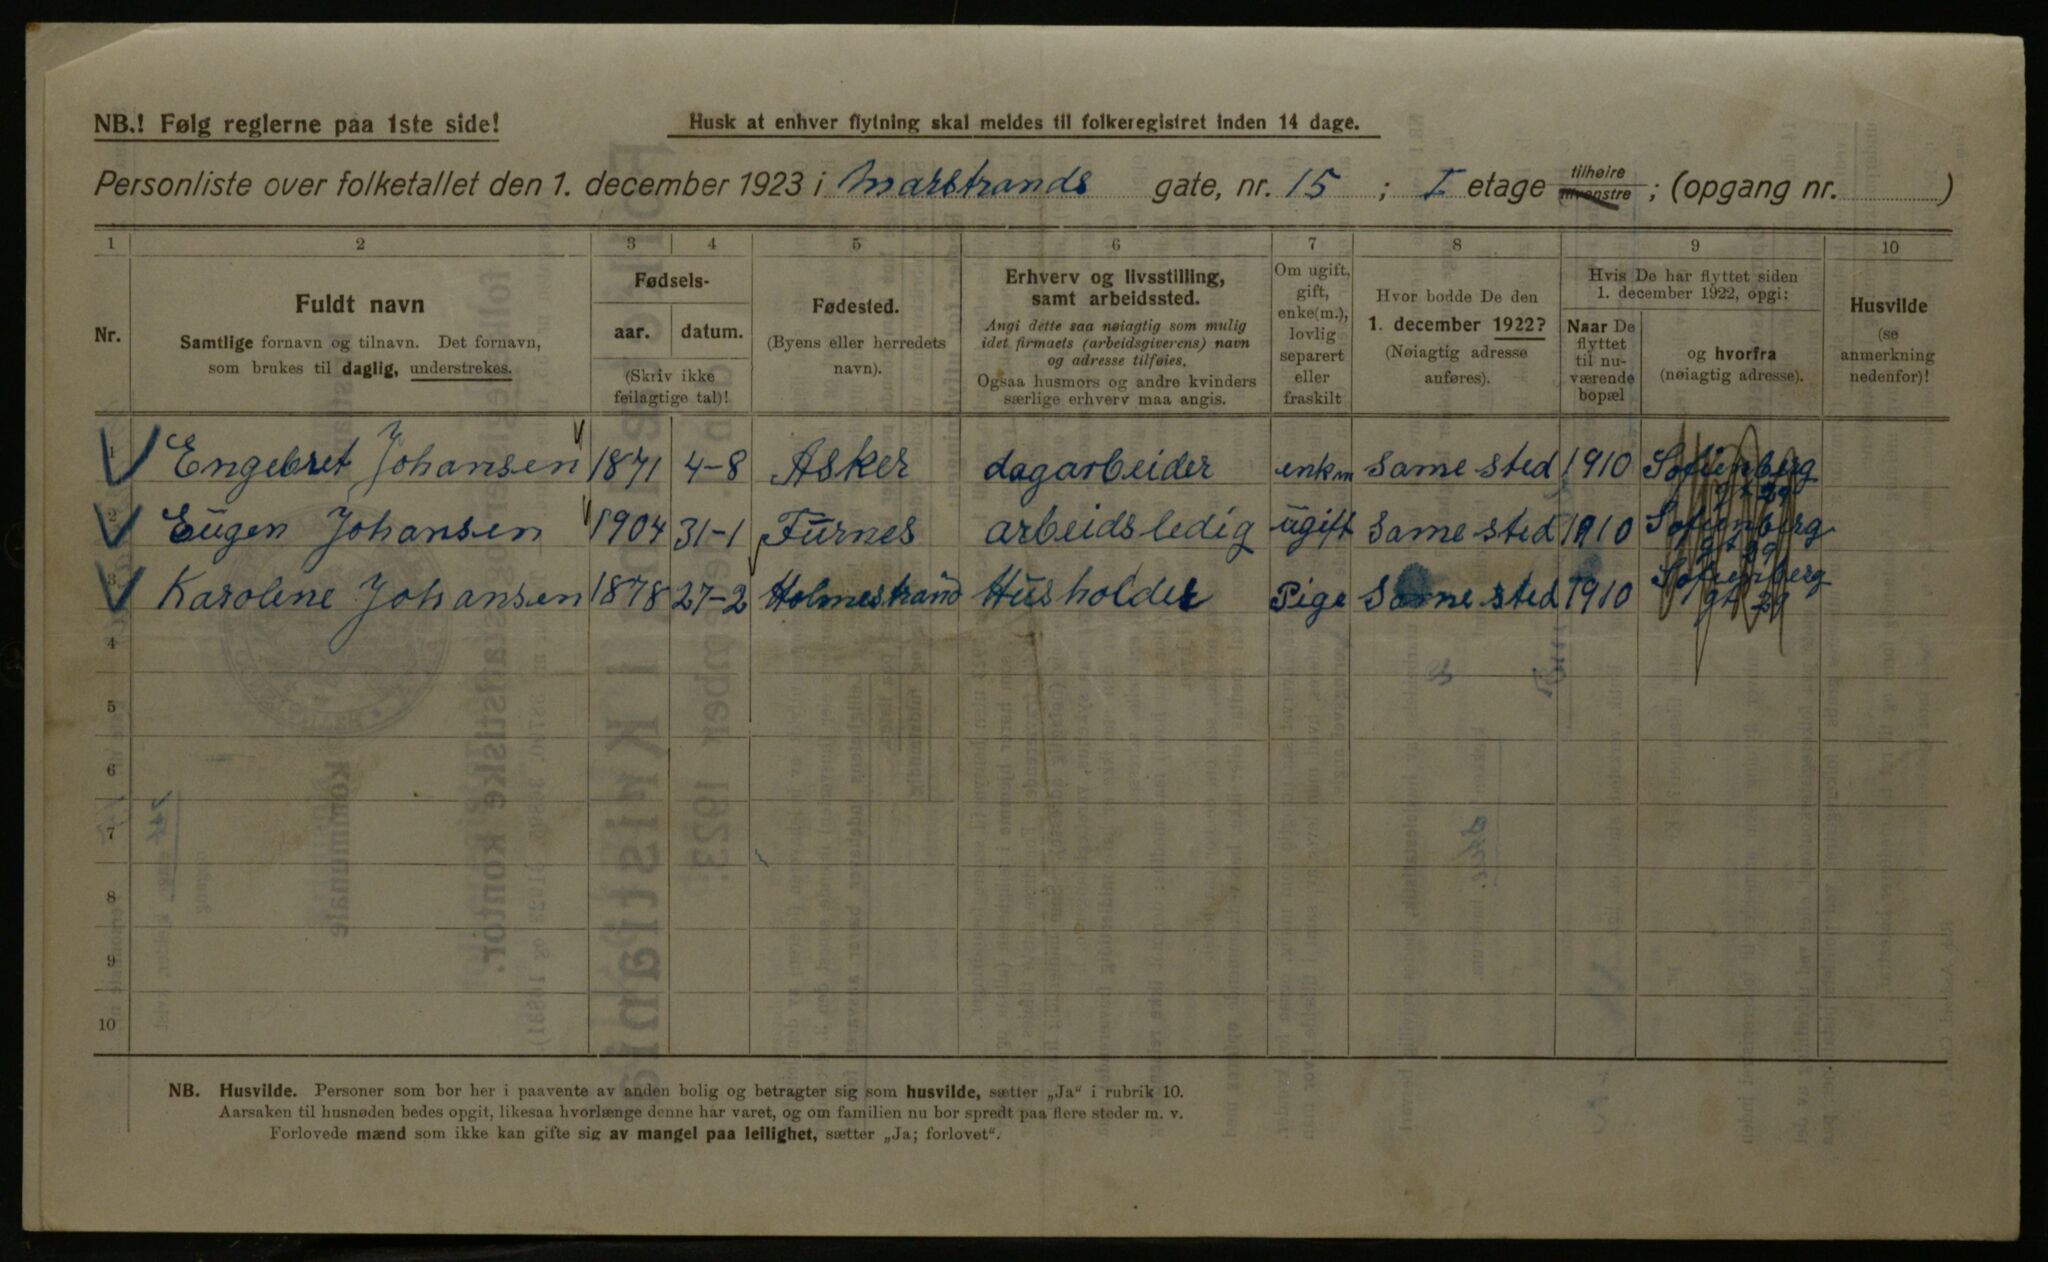 NB.! Følg reglerne paa 1ste side!
Husk at enhver flytning skal meldes til folkeregistret inden 14 dage.
Personliste over folketallet den 1. december 1923 i Marstrands gate, nr. 15 ; I etage tilhøire tilvenstre ; (opgang nr. )
1 2 3 4 5 6 7 8 9 10
Nr.
Fuldt navn
Samtlige fornavn og tilnavn. Det fornavn,
som brukes til daglig, understrekes.
Fødsels-
aar. datum.
(Skriv ikke
feilagtige tal)!
Fødested.
(Byens eller herredets
navn).
Erhverv og livsstilling,
samt arbeidssted.
Angi dette saa nøiagtig som mulig
idet firmaets (arbeidsgiverens) navn
og adresse tilføies.
Ogsaa husmors og andre kvinders
særlige erhverv maa angis.
Om ugift,
gift,
enke(m.),
lovlig
separert
eller
fraskilt
Hvor bodde De den
1. december 1922?
(Nøiagtig adresse
anføres).
Hvis De har flyttet siden
1. december 1922, opgi:
Naar De
flyttet
til nu-
værende
bopæl
og hvorfra
(nøiagtig adresse).
Husvilde
(se
anmerkning
nedenfor)!
1 Engebret Johansen 1871 4-8 Asker dagarbeider enkm Same sted 1910 Sofienberg
gt 29
2 Eugen Johansen 1904 31-1 Furnes arbeidsledig ugift Same sted 1910 Sofienberg
gt 29
3 Karoline Johansen 1878 27-2 Holmestrand Husholder Pige Same sted 1910 Sofienberg
gt 29
4
5
6
7
8
9
10
NB. Husvilde. Personer som bor her i paavente av anden bolig og betragter sig som husvilde, sætter „Ja" i rubrik 10.
Aarsaken til husnøden bedes opgit, likesaa hvorlænge denne har varet, og om familien nu bor spredt paa flere steder m. v.
Forlovede mænd som ikke kan gifte sig av mangel paa leilighet, sætter „Ja; forlovet".